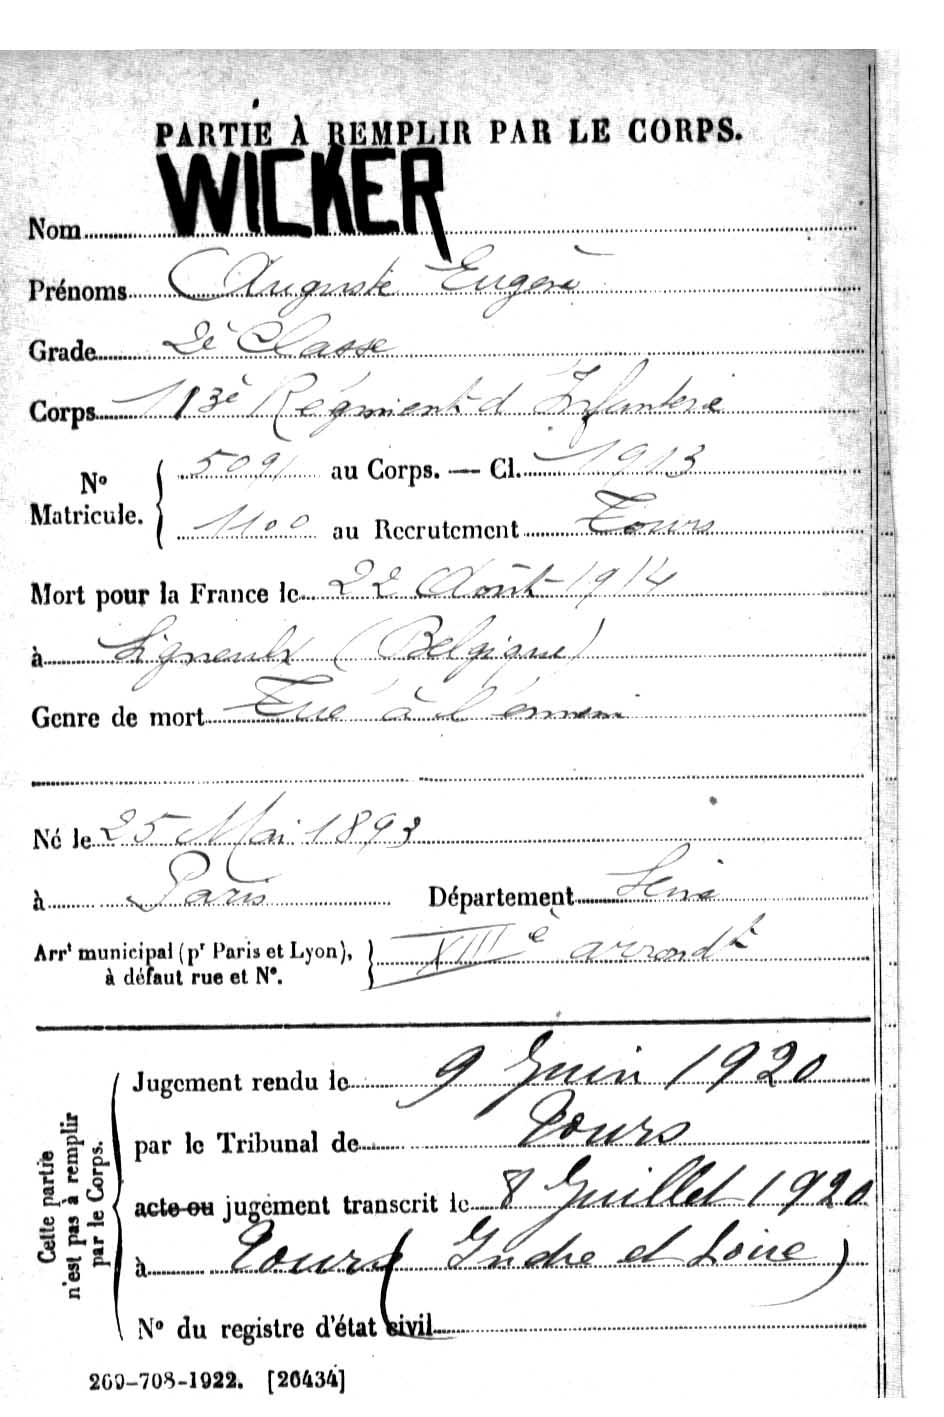 PARTIE À REMPLIR PAR LE CORPS.
Nom WICKER
Prénoms Auguste Eugène
Grade 2è Classe
Corps 113è Régiment d'Infanterie
No Matricule. 5091 au Corps. — Cl. 1913
1100 au Recrutement Tours
Mort pour la France le 22 Août 1914
à Ligneulx (Belgique)
Genre de mort Tué à l'ennemi
Né le 25 Mai 1893
à Paris Département Seine
Arrt municipal (pr Paris et Lyon), à défaut rue et No. XIIIè arrondt
Cette partie n'est pas à remplir par le Corps.
Jugement rendu le 9 Juin 1920
par le Tribunal de Tours
acte ou jugement transcrit le 8 Juillet 1920
à Tours (Indre et Loire)
No du registre d'état civil
269-708-1922. [26434]